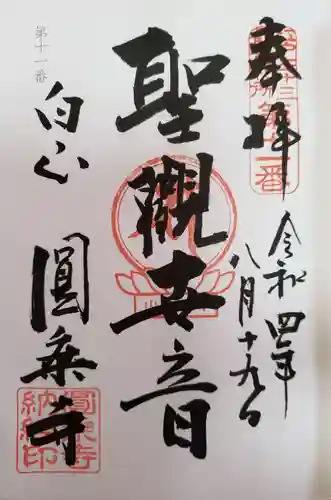 奉拝
第十一番
令和四年
八月十九日
聖觀世音
第十一番
白山
圓乗寺
圓乗寺
納経印